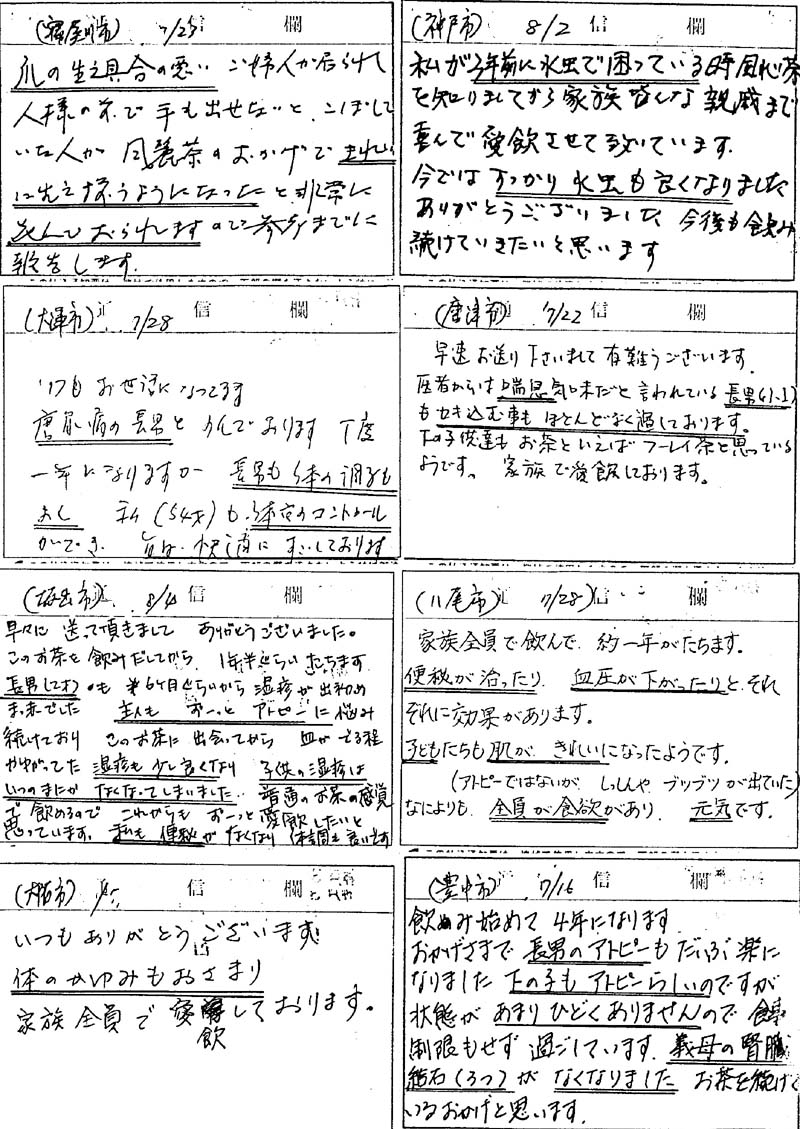 (寝屋川市) 7/25 信 欄
爪の生え具合の悪い ご婦人が居られて
人様の前で手も出せないと、こぼして
いた人が 風麗茶のおかげで きれい
に生え揃うようになったと非常に
喜んでおられますので参考までに
報告します.
(神戸市) 8/2 信 欄
私が3年前に水虫で困っている時風麗茶
を知りましてから家族皆んな親戚まで
喜んで愛飲させて頂いています.
今では すっかり 水虫も良くなりました
ありがとうございました 今後も飲み
続けていきたいと思います
(大津市) 7/28 信 欄
いつも お世話になってます
糖尿病の長男と のんでおります 丁度
一年になりますが 長男も 体の調子も
よく 私(54才)も、体のコントロール
ができ、 快適に すごしております
(唐津市) 7/22 信 欄
早速お送り下さいまして 有難うございます.
医者からは喘息気味だと言われている長男(小1)
もせき込む事も ほとんどなく過しております。
下の子供達も お茶といえば フーレイ茶と思っている
ようです。 家族で愛飲しております。
8/4 信 欄
早々に 送って頂きまして ありがとうございました。
このお茶を飲みだしてから、1年半ぐらい たちます
長男(2才)も 半6ヶ月ぐらいから 湿疹が出初め
ました 主人も ずーっと アトピーに悩み
続けており このお茶に 出会ってから 血がでる程
かゆがってた 湿疹も少し良くなり 子供の湿疹は
いつのまにか なくなってしまいました 普通のお茶の感覚
で 飲めるので これからも ずーっと愛飲したいと
思っています. 私も 便秘が なくなり 体調も良いです
(八尾市) 7/28 信 欄
家族全員で飲んで、約一年がたちます。
便秘が治ったり、 血圧が下がったりと、それ
ぞれに効果があります。
子どもたちも肌が、きれいになったようです。
(アトピーではないが、しっしんや ブツブツが出ていた)
なによりも、全員が食欲があり、 元気です。
(大阪市) 信 欄
いつもありがとうございます!
体のかゆみもおさまり
家族 全員で 愛飲しております。
(豊中市) 7/16 信 欄
飲み始めて 4年になります
おかげさまで 長男のアトピーも だいぶ楽に
なりました 下の子も アトピーらしいのですが
状態が あまりひどくありませんので 食事
制限もせず 過ごしています. 義母の腎臓
結石(3つ)が なくなりました お茶を続けて
いるおかげと思います.